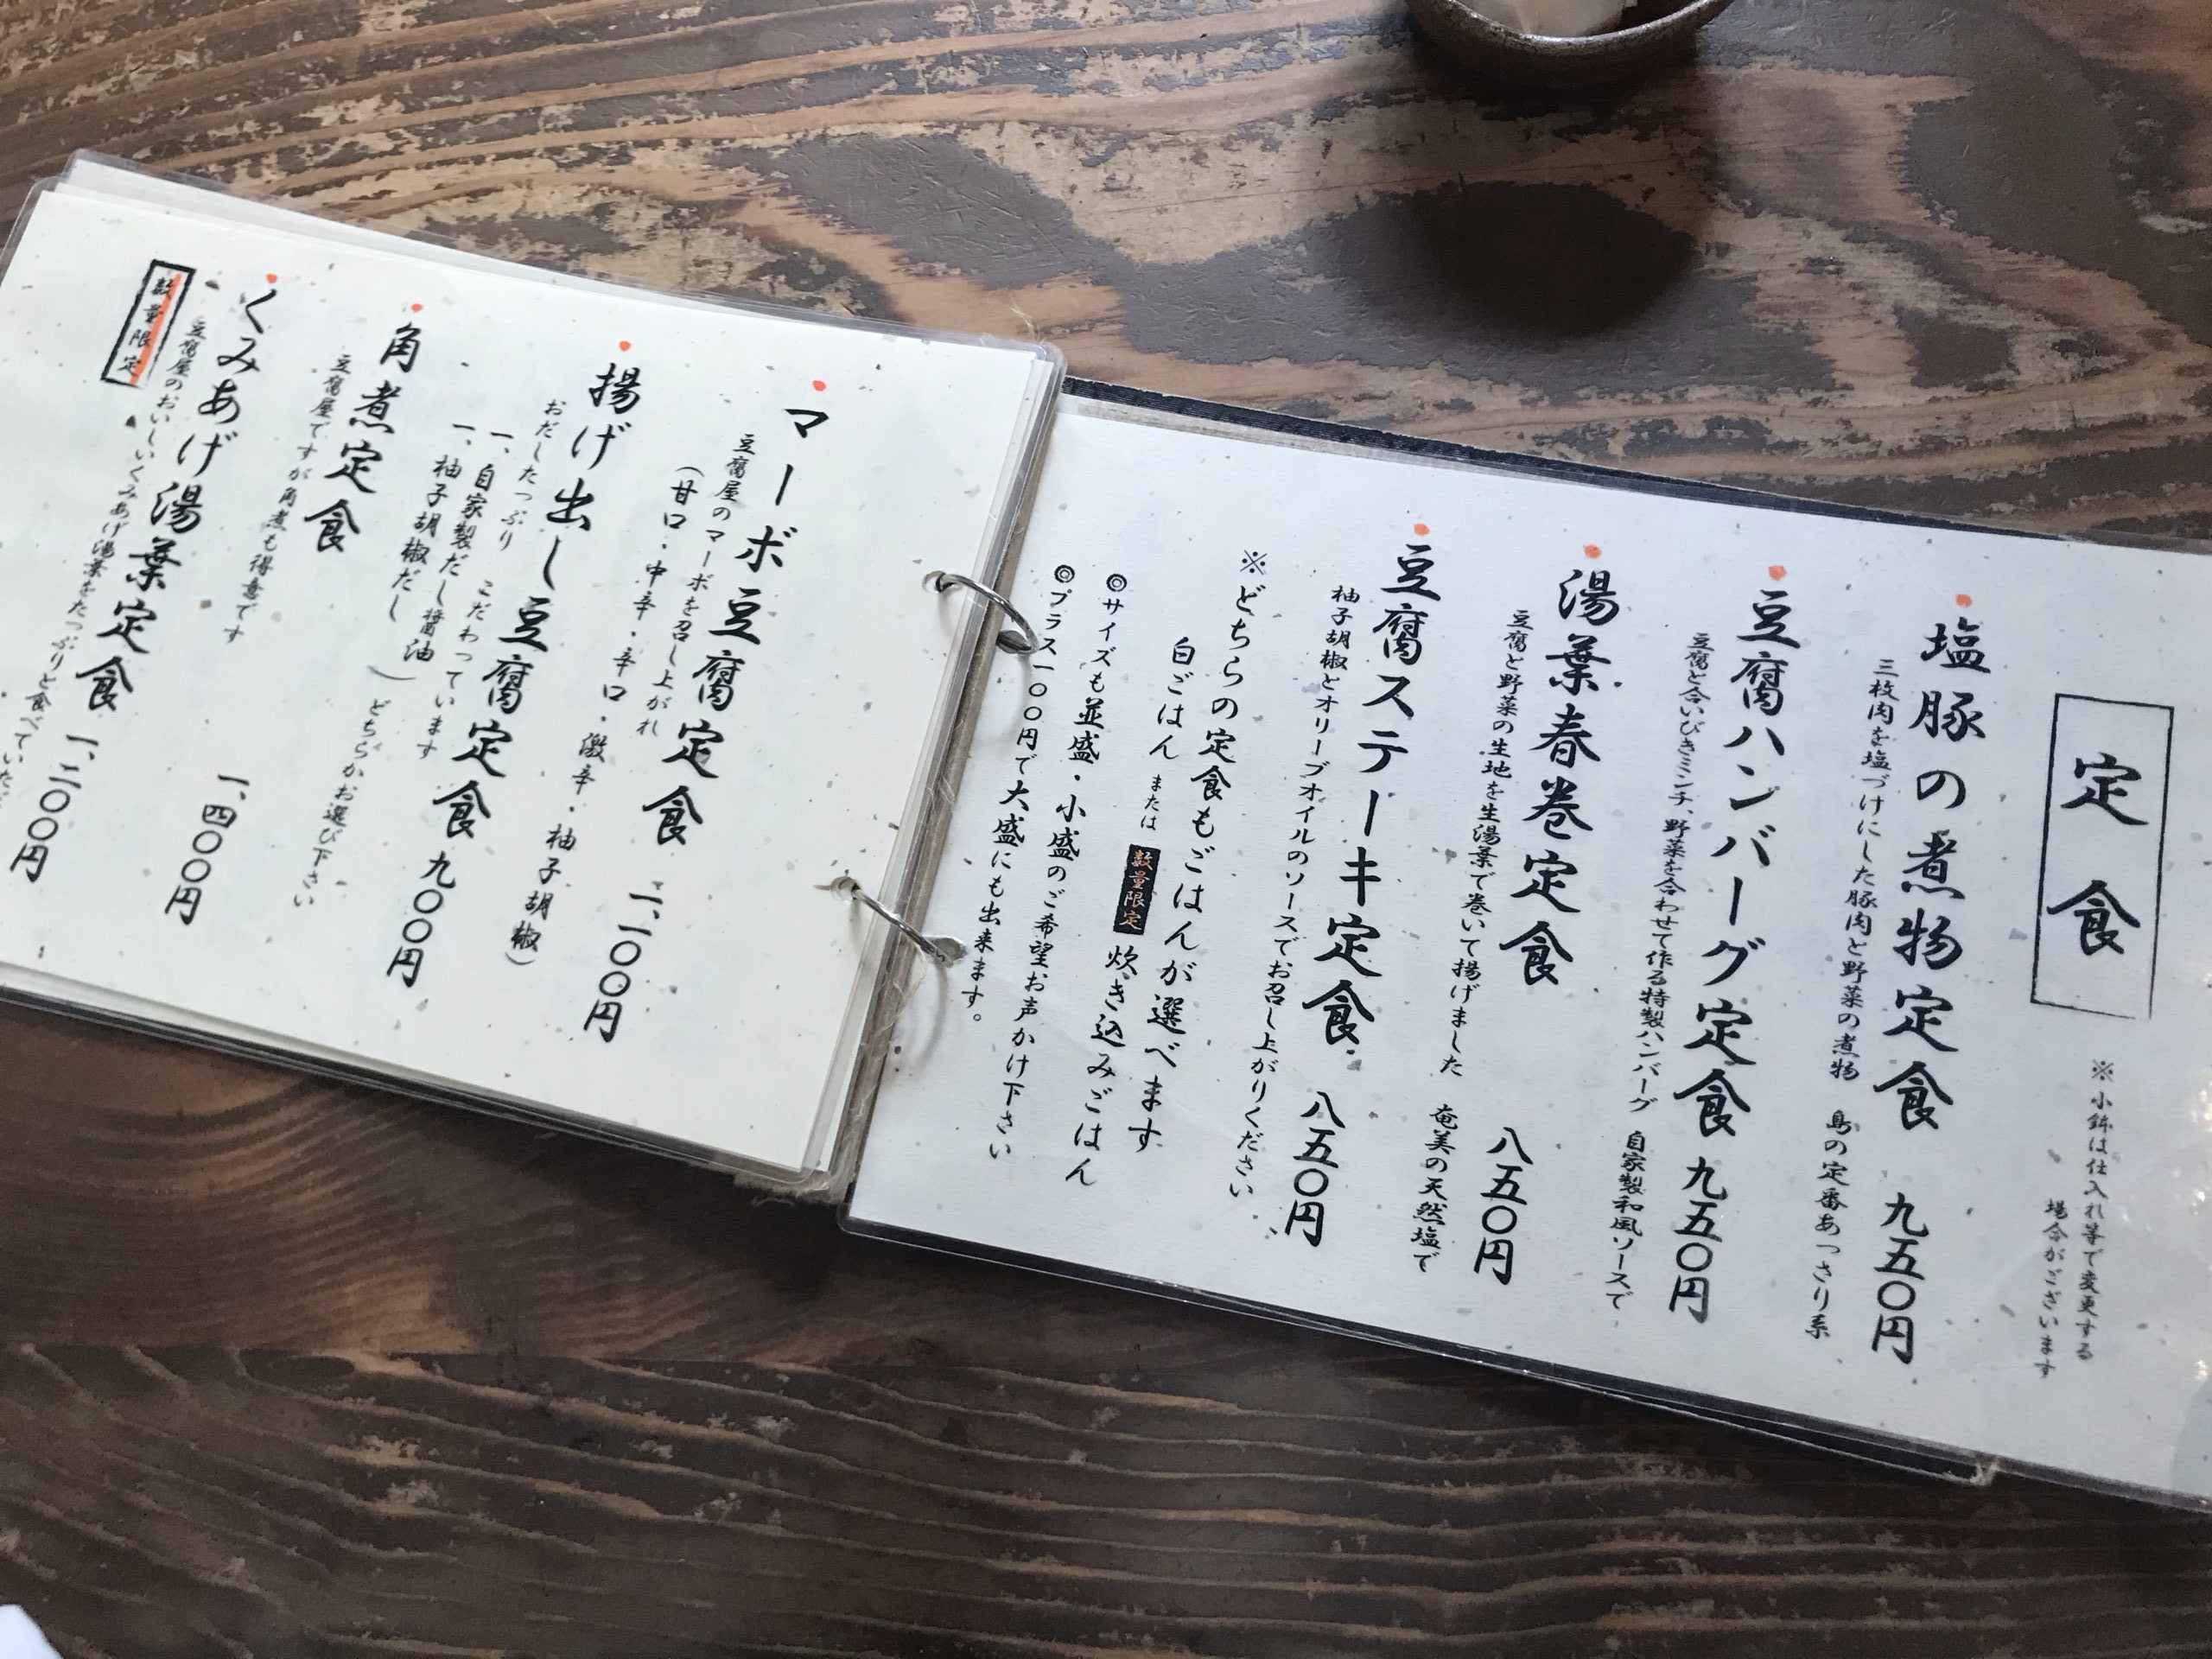 定食
※小鉢は仕入れ等で変更する
場合がございます
塩豚の煮物定食 九五〇円
三枚肉を塩づけにした豚肉と野菜の煮物 島の定番あっさり系
豆腐ハンバーグ定食 九五〇円
豆腐と合いびきミンチ、野菜を合わせて作る特製ハンバーグ 自家製和風ソースで
湯葉春巻定食 八五〇円
豆腐と野菜の生地を生湯葉で巻いて揚げました 奄美の天然塩で
豆腐ステーキ定食 八五〇円
柚子胡椒とオリーブオイルのソースでお召し上がりください
※どちらの定食もごはんが選べます
白ごはん または 数量限定 炊き込みごはん
◎サイズも並盛・小盛のご希望お声かけ下さい
◎プラス一〇〇円で大盛にも出来ます。
マーボ豆腐定食 一、一〇〇円
豆腐屋のマーボを召し上がれ
(甘口・中辛・辛口・激辛・柚子胡椒)
揚げ出し豆腐定食 九〇〇円
おだしたっぷり こだわっています
一、自家製だし醤油
一、柚子胡椒だし ) どちらかお選び下さい
角煮定食 一、四〇〇円
豆腐屋ですが角煮も得意です
くみあげ湯葉定食 一、二〇〇円
豆腐屋のおいしいくみあげ湯葉をたっぷりと食べていた
数量限定